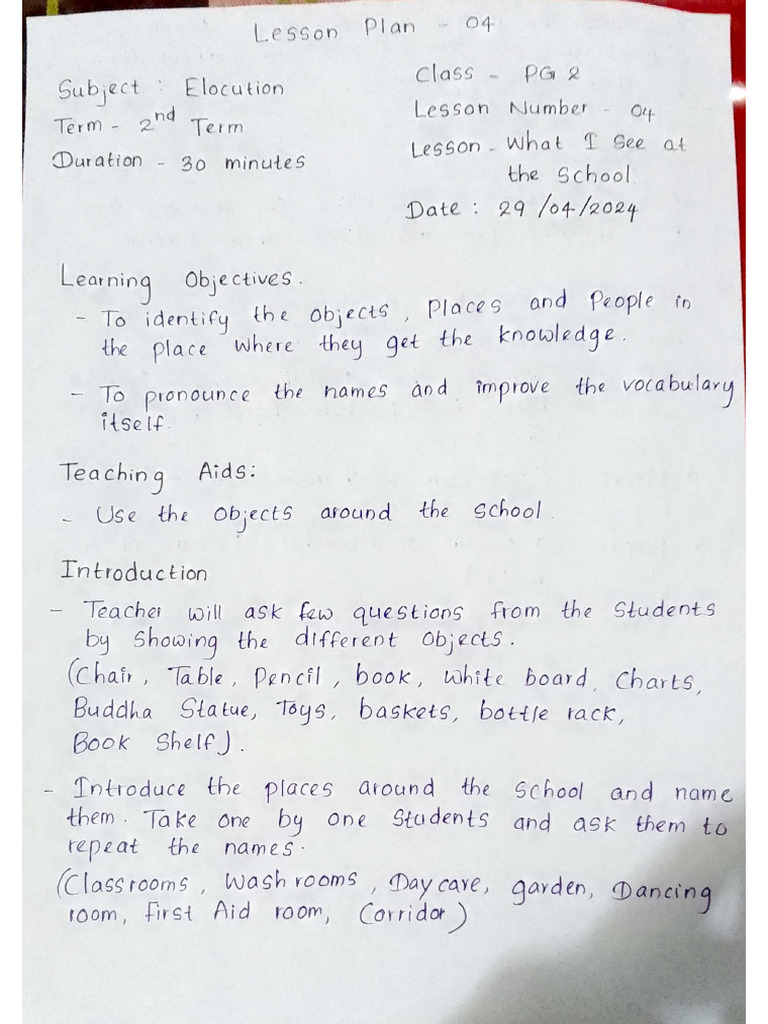 Lesson Plan - 04
Subject : Elocution
Term - 2nd Term
Duration - 30 minutes
Class - PG 2
Lesson Number - 04
Lesson - What I See at
the School.
Date : 29/04/2024
Learning Objectives.
- To identify the objects, Places and People in
the place where they get the knowledge.
- To pronounce the names and improve the vocabulary
itself.
Teaching Aids:
- Use the objects around the school.
Introduction
- Teacher will ask few questions from the students
by showing the different objects.
(Chair, Table, Pencil, book, white board, Charts,
Buddha Statue, Toys, baskets, bottle rack,
Book Shelf).
- Introduce the places around the school and name
them. Take one by one students and ask them to
repeat the names.
(Classrooms, Wash rooms, Day care, garden, Dancing
room, First Aid room, Corridor)